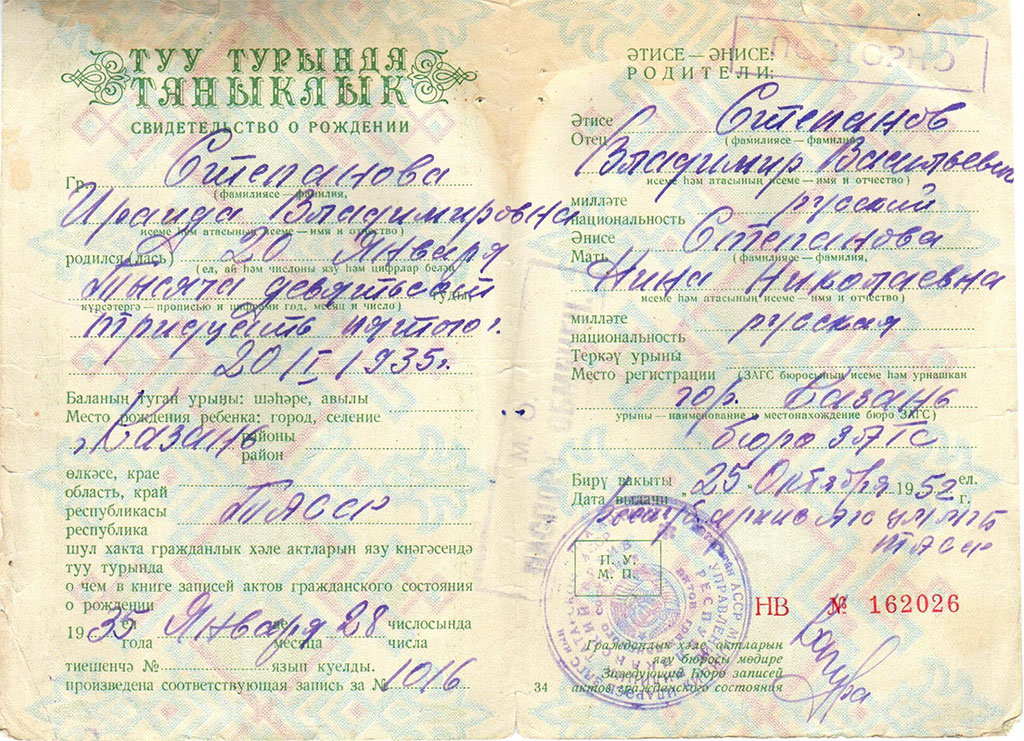 ТУУ ТУРЫНДА
ТАНЫКЛЫК
СВИДЕТЕЛЬСТВО О РОЖДЕНИИ
Гр. Степанова
(фамилиясе — фамилия,
Ираида Владимировна
исеме һәм атасының исеме — имя и отчество)
родился (лась) 20 Января
(ел, ай һәм числоны язу һәм цифрлар белән
Тысяча девятьсот
күрсәтергә — прописью и цифрами год, месяц и число)
тридцать пятого г.
20/I 1935г.
Баланың туган урыны: шәһәре, авылы
Место рождения ребенка: город, селение
г. Казань районы
район
өлкәсе, крае
область, край
республикасы ТАССР
республика
шул хакта гражданлык хәле актларын язу кнәгәсендә
туу турында
о чем в книге записей актов гражданского состояния
о рождении
1935 ел Января ае 28 числосында
года месяца числа
тиешенчә № язып куелды.
произведена соответствующая запись за № 1016
ПОВТОРНО
ӘТИСЕ — ӘНИСЕ:
РОДИТЕЛИ:
Әтисе Степанов
Отец (фамилиясе — фамилия,
Владимир Васильевич
исеме һәм атасының исеме — имя и отчество)
милләте русский
национальность
Әнисе Степанова
Мать (фамилиясе — фамилия,
Нина Николаевна
исеме һәм атасының исеме — имя и отчество)
милләте русская
национальность
Теркәү урыны
Место регистрации (ЗАГС бюросының исеме һәм урнашкан
гор. Казань
урыны — наименование и местонахождение бюро ЗАГС)
бюро ЗАГС
Бирү вакыты ел.
Дата выдачи „25" Октября 1952 г.
ТАССР
П. У.
М. П.
НВ № 162026
Гражданлык хәле актларын
язу бюросы мөдире
Заведующий Бюро записей
актов гражданского состояния
34